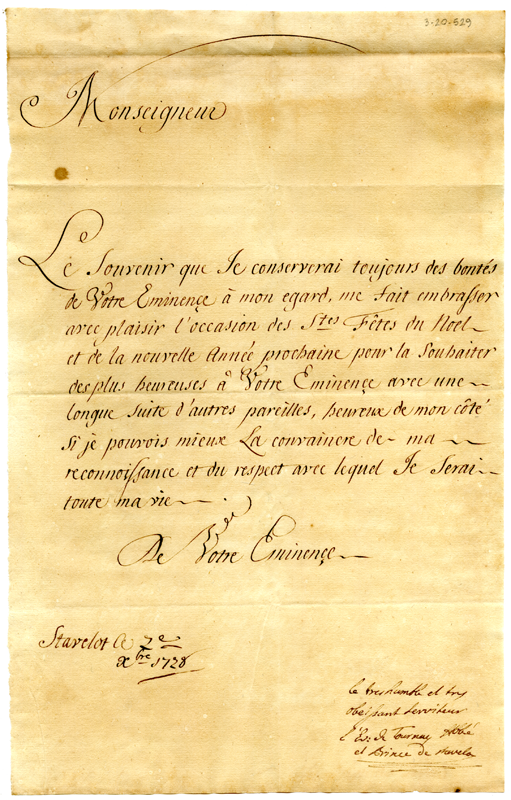 3-20-529
Monseigneur
Le Souvenir que Je conserverai toujours des bontés
de Votre Eminençe à mon egard, me fait embrasser
avec plaisir l'occasion des Stes Fêtes du Noel
et de la nouvelle Année prochaine pour la Souhaiter
des plus heureuses à Votre Eminençe avec une
longue suite d'autres pareilles, heureux de mon côté
Si je pouvois mieux La convaincre de ma
reconnoissance et du respect avec lequel Je Serai
toute ma vie
De Votre Eminençe
Stavelot le 7e
Xbre 1728
le tres humble et tres
obeissant serviteur
l'Ev: de Tournay Abbé
et Prince de Stavelo